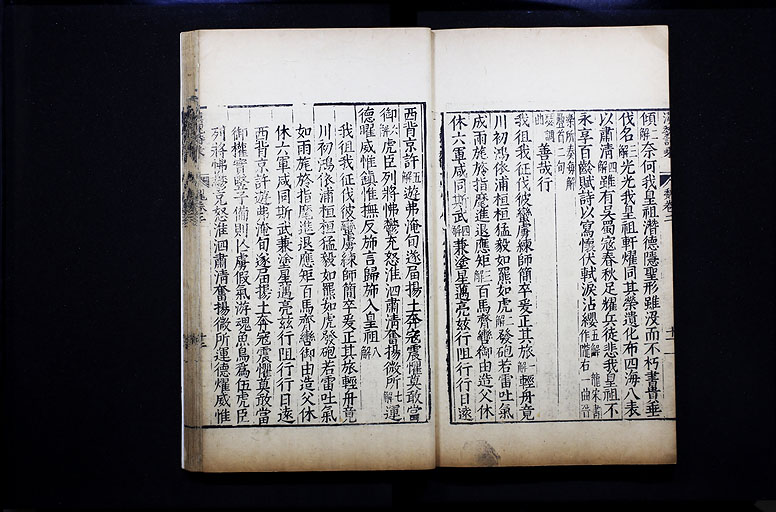 傾二解奈何我皇祖潛德隱聖形雖沒而不朽書貴垂
伐名三解光光我皇祖軒燿同其榮遺化布四海八表
以肅清四解雖有吳蜀寇春秋足耀兵徒悲我皇祖不
永享百齡賦詩以寫懷伏軾淚沾纓五解
善哉行
我徂我征伐彼蠻虜練師簡卒爰正其旅一解輕舟竟
川初鴻依浦桓桓猛毅如羆如虎二解發砲若雷吐氣
成雨旄旍指麾進退應矩三解百馬齊轡御由造父休
休六軍咸同斯武四解兼塗星邁亮茲行阻行行日遠
西背京許五解遊弗淹旬遂屆揚土奔寇震懼莫敢當
御六解虎臣列將怫鬱充怒淮泗肅清奮揚微所七解運
德曜威惟鎮惟撫反旆言歸旆入皇祖八解
我徂我征伐彼蠻虜練師簡卒爰正其旅輕舟竟
川初鴻依浦桓桓猛毅如羆如虎發砲若雷吐氣
如雨旄旍指麾進退應矩百馬齊轡御由造父休
休六軍咸同斯武兼塗星邁亮茲行阻行行日遠
西背京許遊弗淹旬遂屆揚土奔寇震懼莫敢當
御權實豎子備則亡虜假氣游魂魚鳥為伍虎臣
列將怫鬱充怒淮泗肅清奮揚微所運德燿威惟